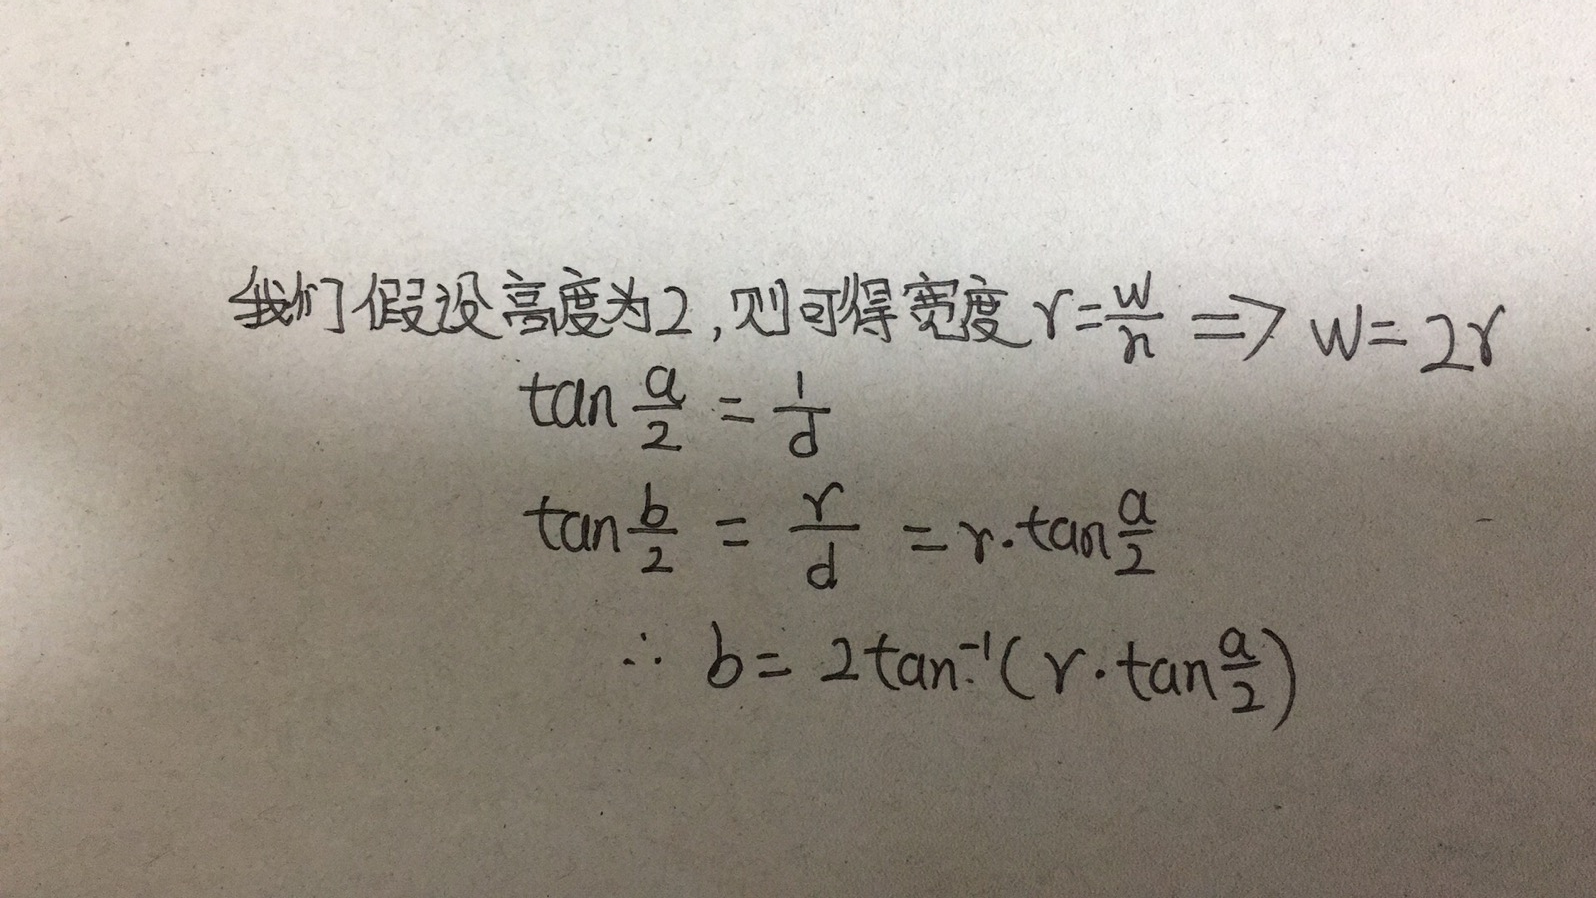 我们假设高度为2,则可得宽度 r=w/h => w=2r
tan a/2 = 1/d
tan b/2 = r/d = r·tan a/2
∴ b= 2tan⁻¹(r·tan a/2)